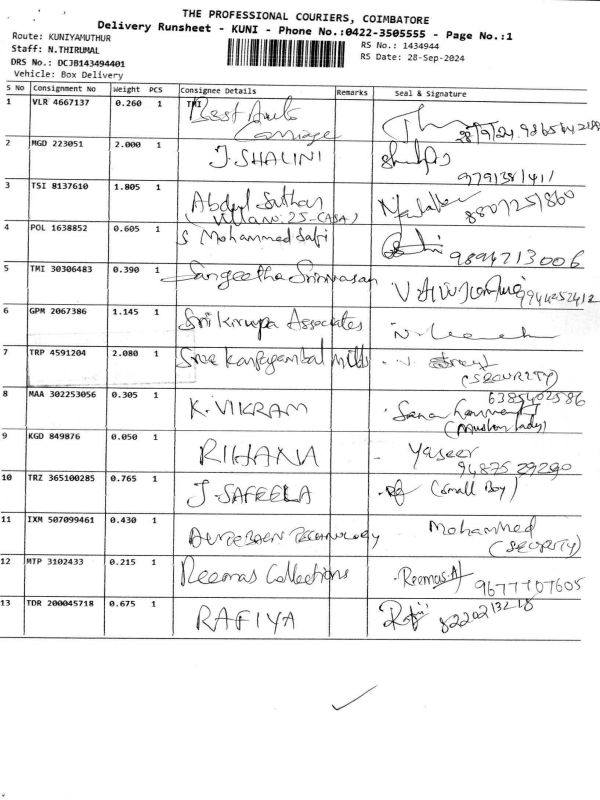 THE PROFESSIONAL COURIERS, COIMBATORE
Delivery Runsheet - KUNI - Phone No.:0422-3505555 - Page No.:1
Route: KUNIYAMUTHUR
RS No.: 1434944
Staff: N.THIRUMAL
RS Date: 28-Sep-2024
DRS No.: DCJB143494401
Vehicle: Box Delivery
S No Consignment No Weight PCS Consignee Details Remarks Seal & Signature
1 VLR 4667137 0.260 1 TMI Best Auto
Carriage
2 MGD 223051 2.000 1 J.SHALINI
9791381411
3 TSI 8137610 1.805 1 Abdul Suthar 8807251860
(Villa No: 25-CASA)
4 POL 1638852 0.605 1 S Mohammed Safi 9894713006
5 TMI 30306483 0.390 1 Sangeetha Srinivasan 9944252412
6 GPM 2067386 1.145 1 Sri Krupa Associates
7 TRP 4591204 2.080 1 Sree Karpagambal Mills
(SECURITY)
6385402586
8 MAA 302253056 0.305 1 K.VIKRAM
9 KGD 849876 0.050 1 RIHANA Yaseer
9487529290
10 TRZ 365100285 0.765 1 J-SAFEELA (Small Boy)
11 IXM 507099461 0.430 1 TECHNOLOGY Mohammed
(SECURITY)
12 MTP 3102433 0.215 1 Reemas Collections Reemas.A
9677707605
13 TDR 200045718 0.675 1 RAFIYA 8220213218